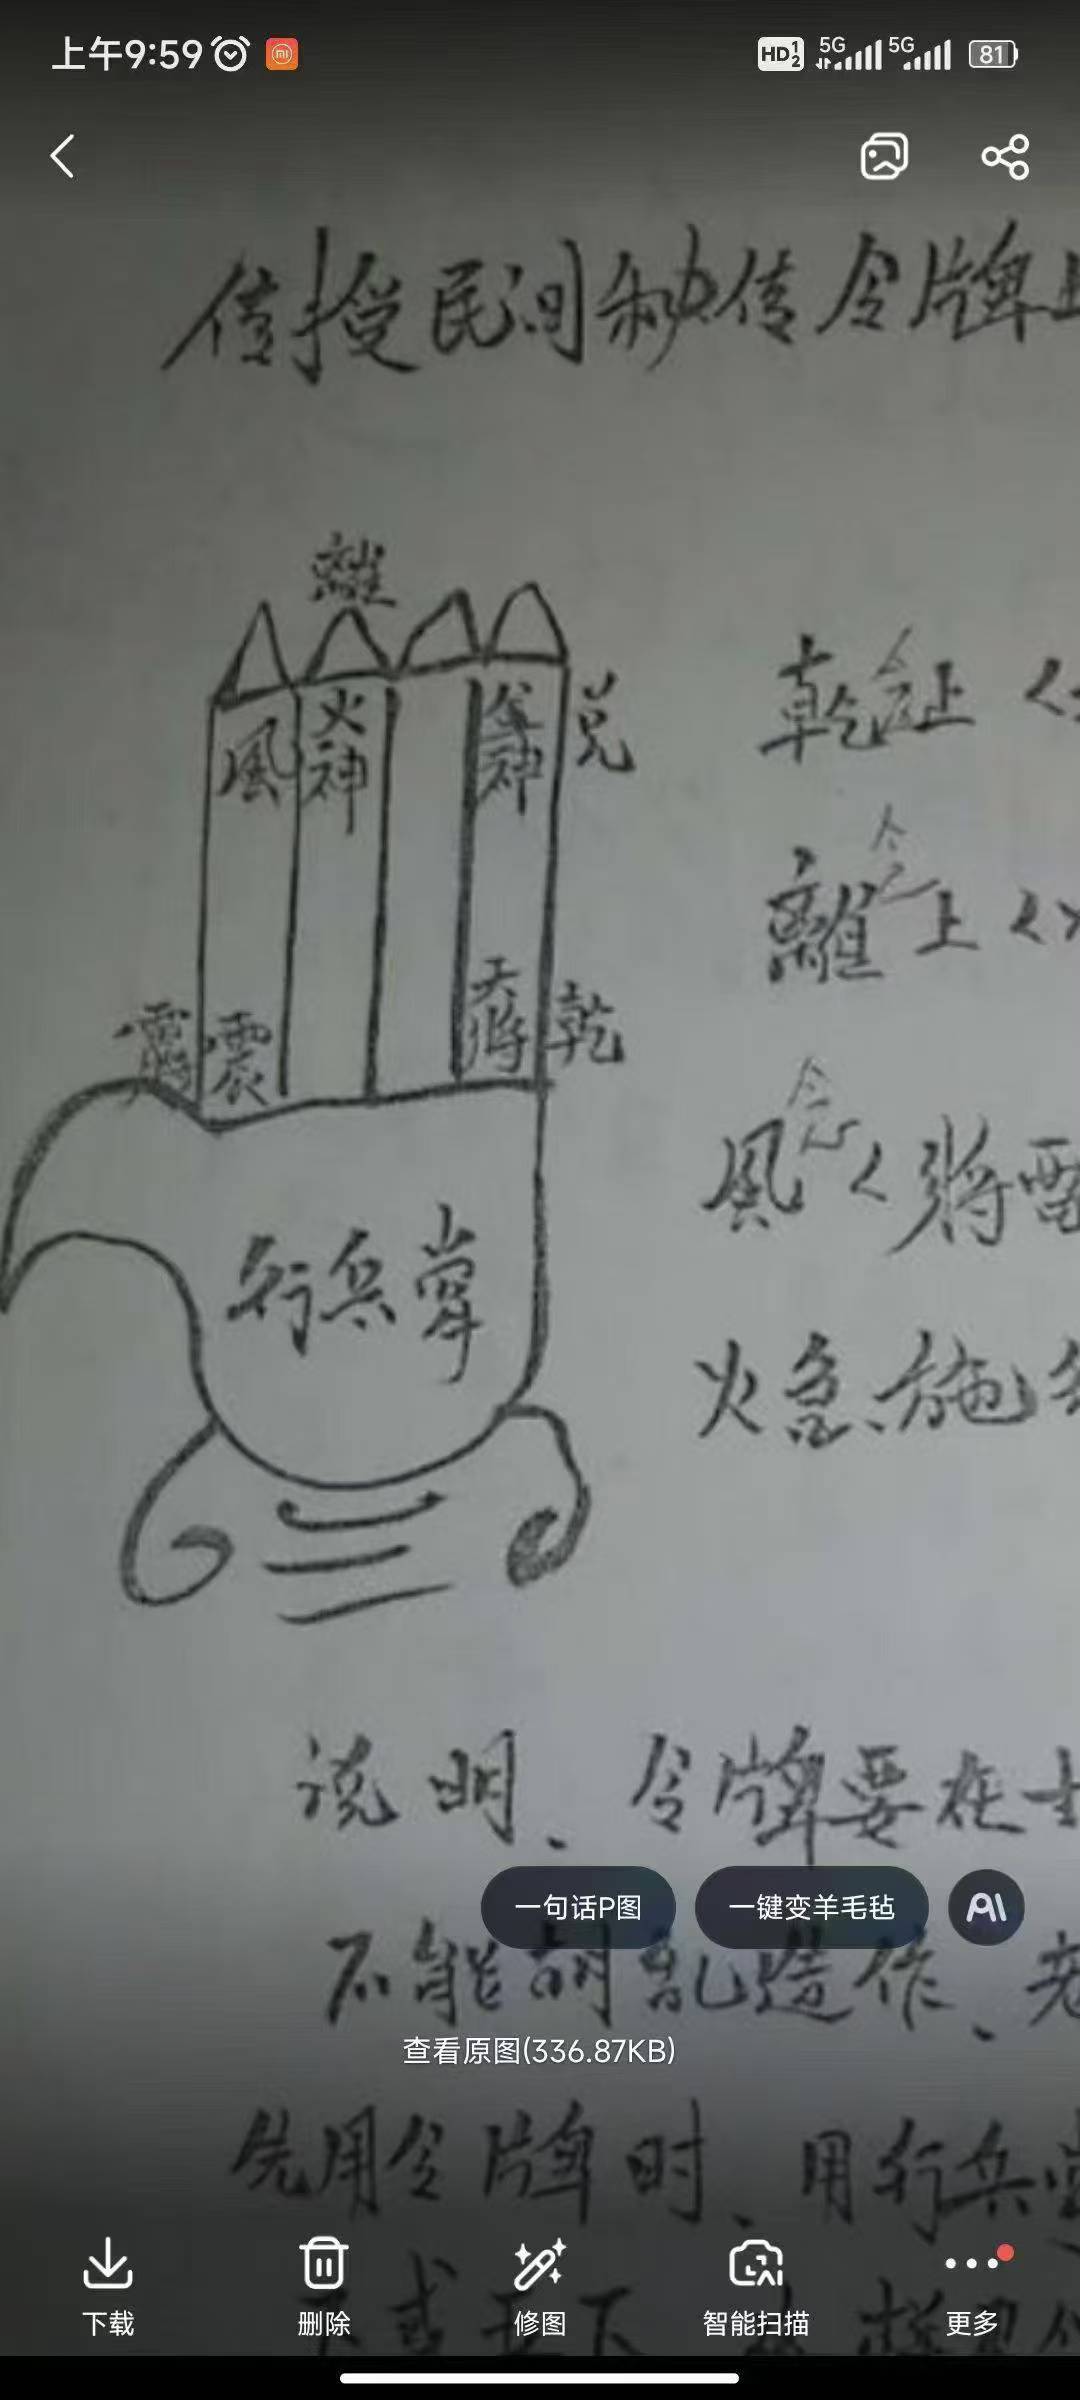 上午9:59 HD 1 2 5G 5G 81
传授民间秘传令牌
離
風 火神 兑
乾念上
離念上
天将 乾
震
風念 将
行兵掌
火急、施
说明、令牌要在
一句话P图 一键变羊毛毡 AI
不能胡乱造作、
查看原图(336.87KB)
先用令牌时、用行兵
下载 删除 修图 智能扫描 更多